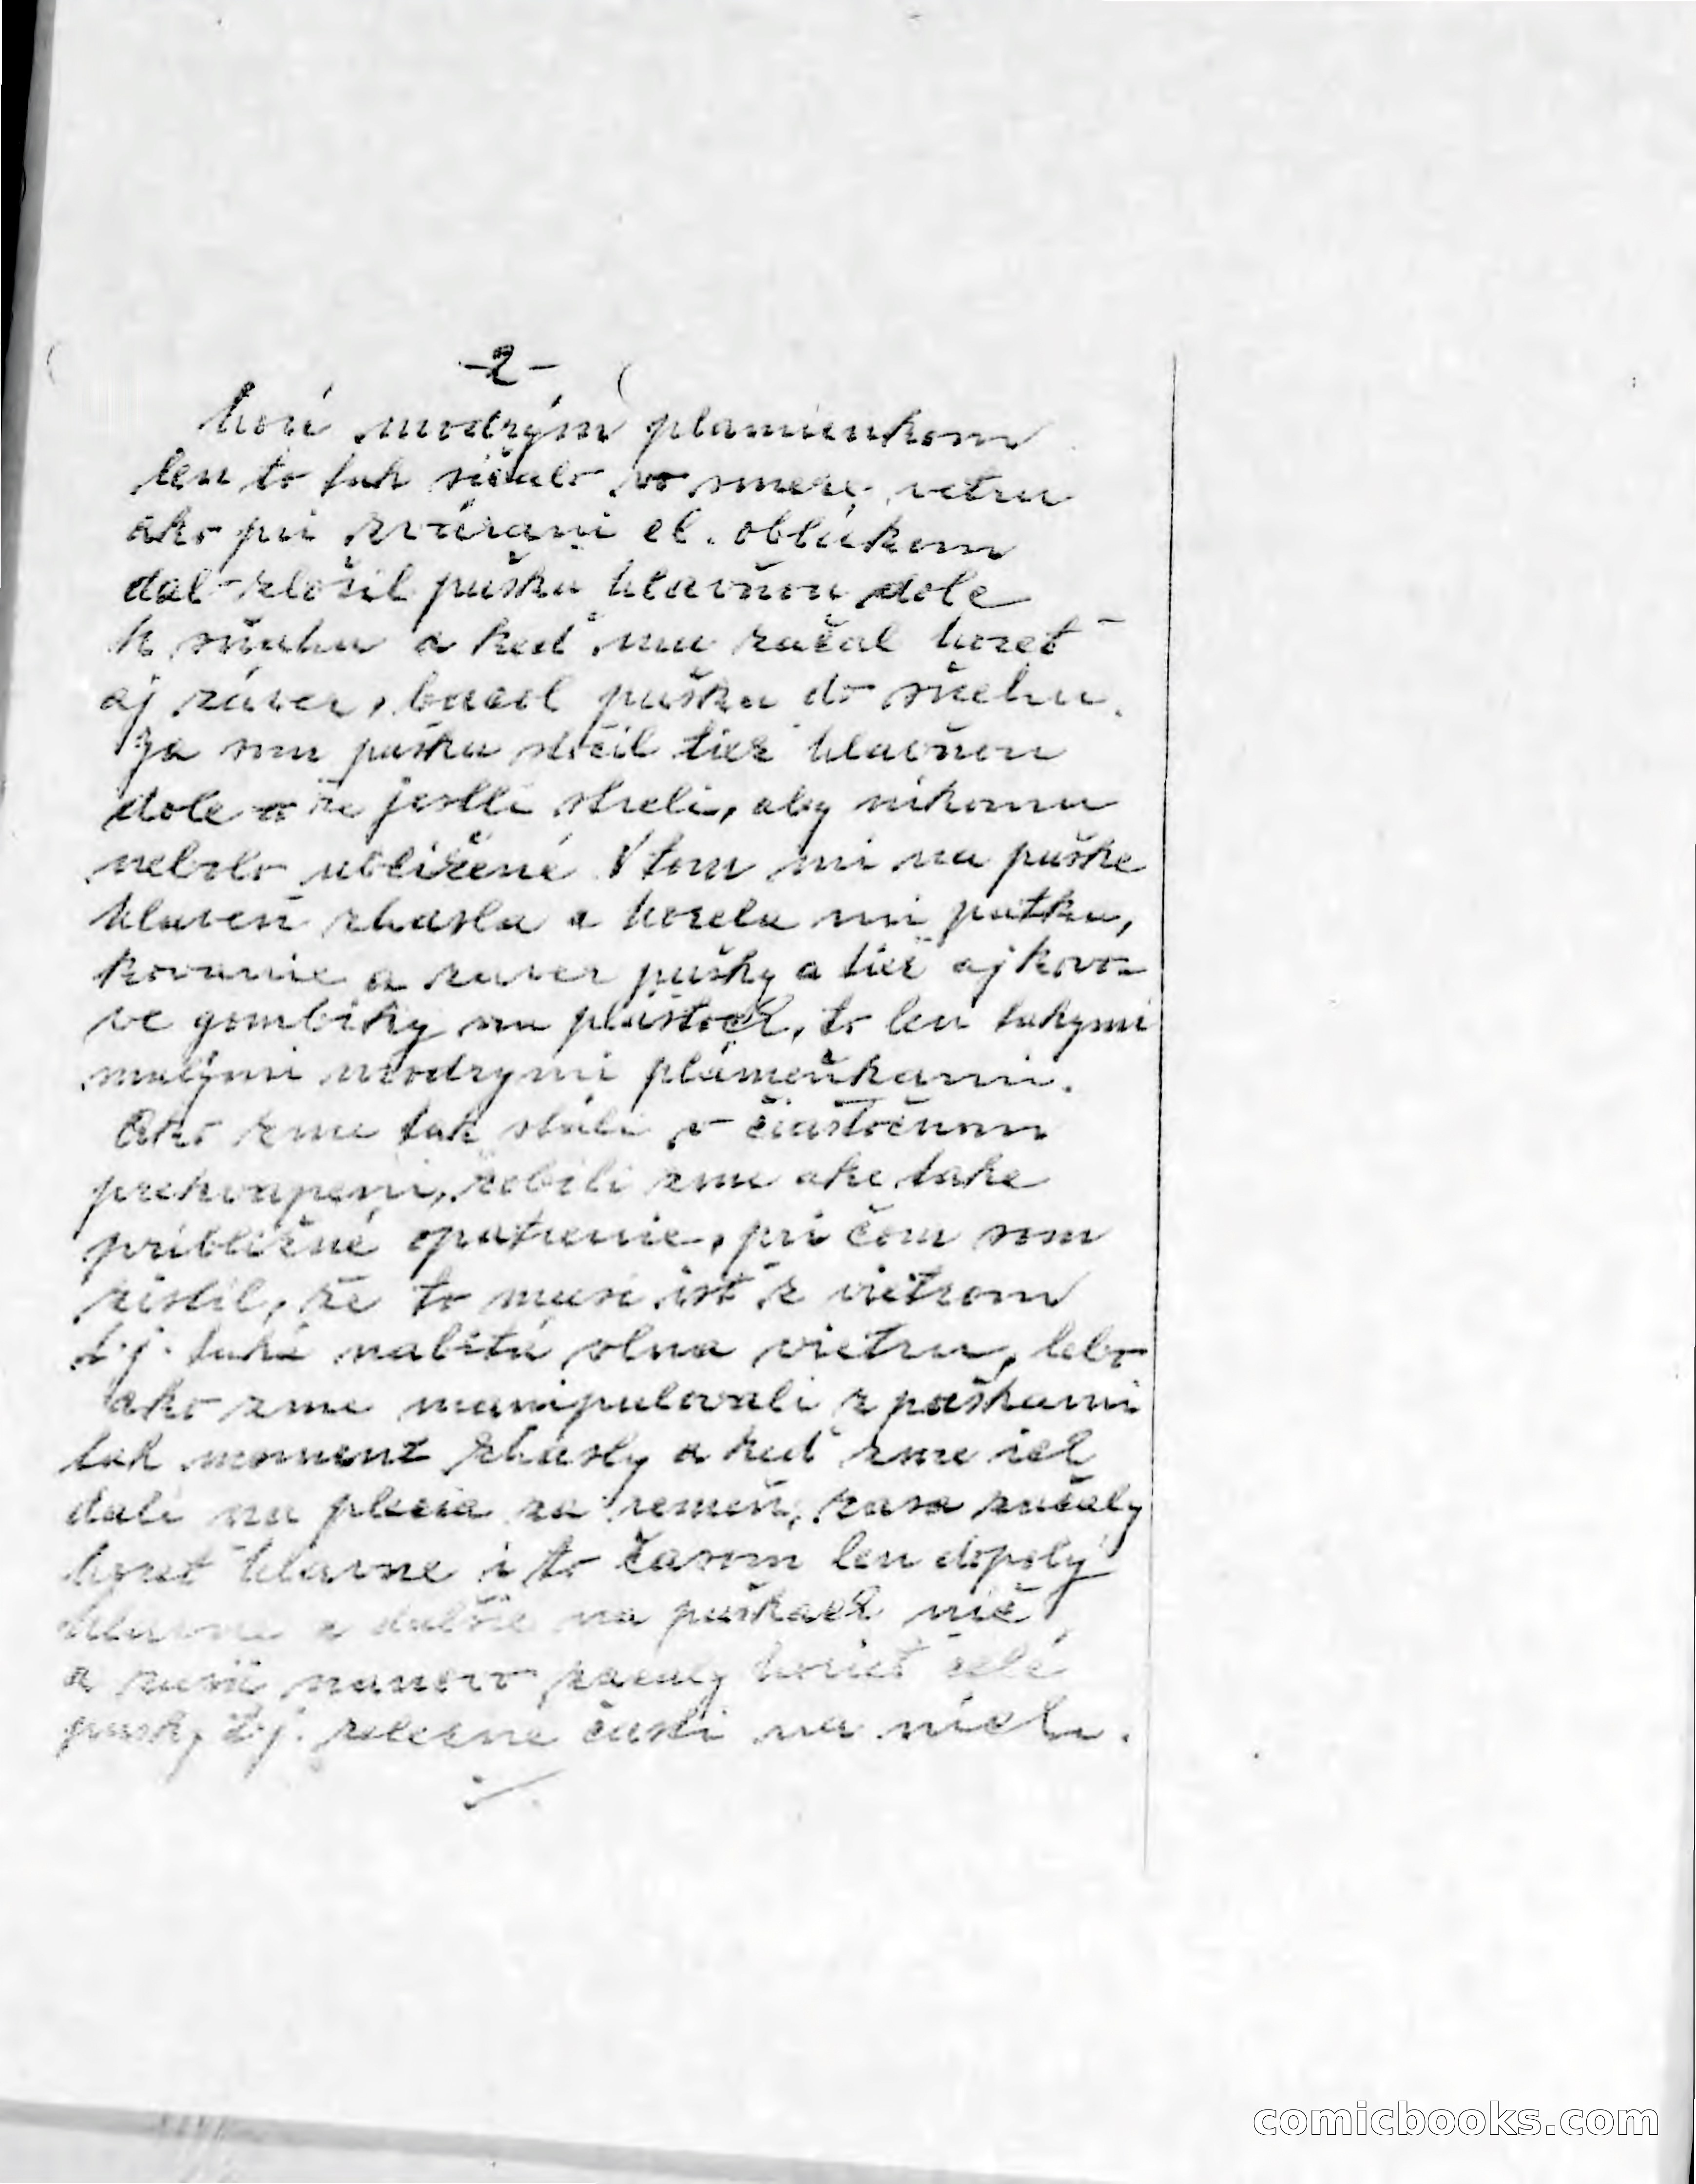 -2-
horí modrým plamienkom
len to tak sičalo vo smere vetru
ako pri zváraní el. oblúkom
dal zložil pušku hlavňou dole
k sňahu a keď mu začal horeť
aj záver, hodil pušku do sňehu.
Ja som pušku skočil tiež hlavňou
dole a že jestli streli, aby nikomu
nebolo ublížené. V tom mi na puške
hlaveň zhasla a horela mi patka,
kovanie a zaver pušky a tiež aj kovo-
ve gombíky na plášťoch, to len takymi
malými modrymi plámeňkami.
Ako zme tak stáli v čiastočnom
prekvapení, robili zme ake take
približné opatrenie, pri čom som
zistil, že to musí isť z vietrom
t.j. taká nabitá vlna vietru, lebo
ako zme manipulovali z puškami
tak moment zhasly a keď zme ich
dali na plecia za remeň, zasa začaly
horeť hlavne i to časom len dopoly
hlavne a dalšie na puškach nič
a zasa nanovo začaly horieť celé
pušky t.j. železne časti na nich.
./.
comicbooks.com